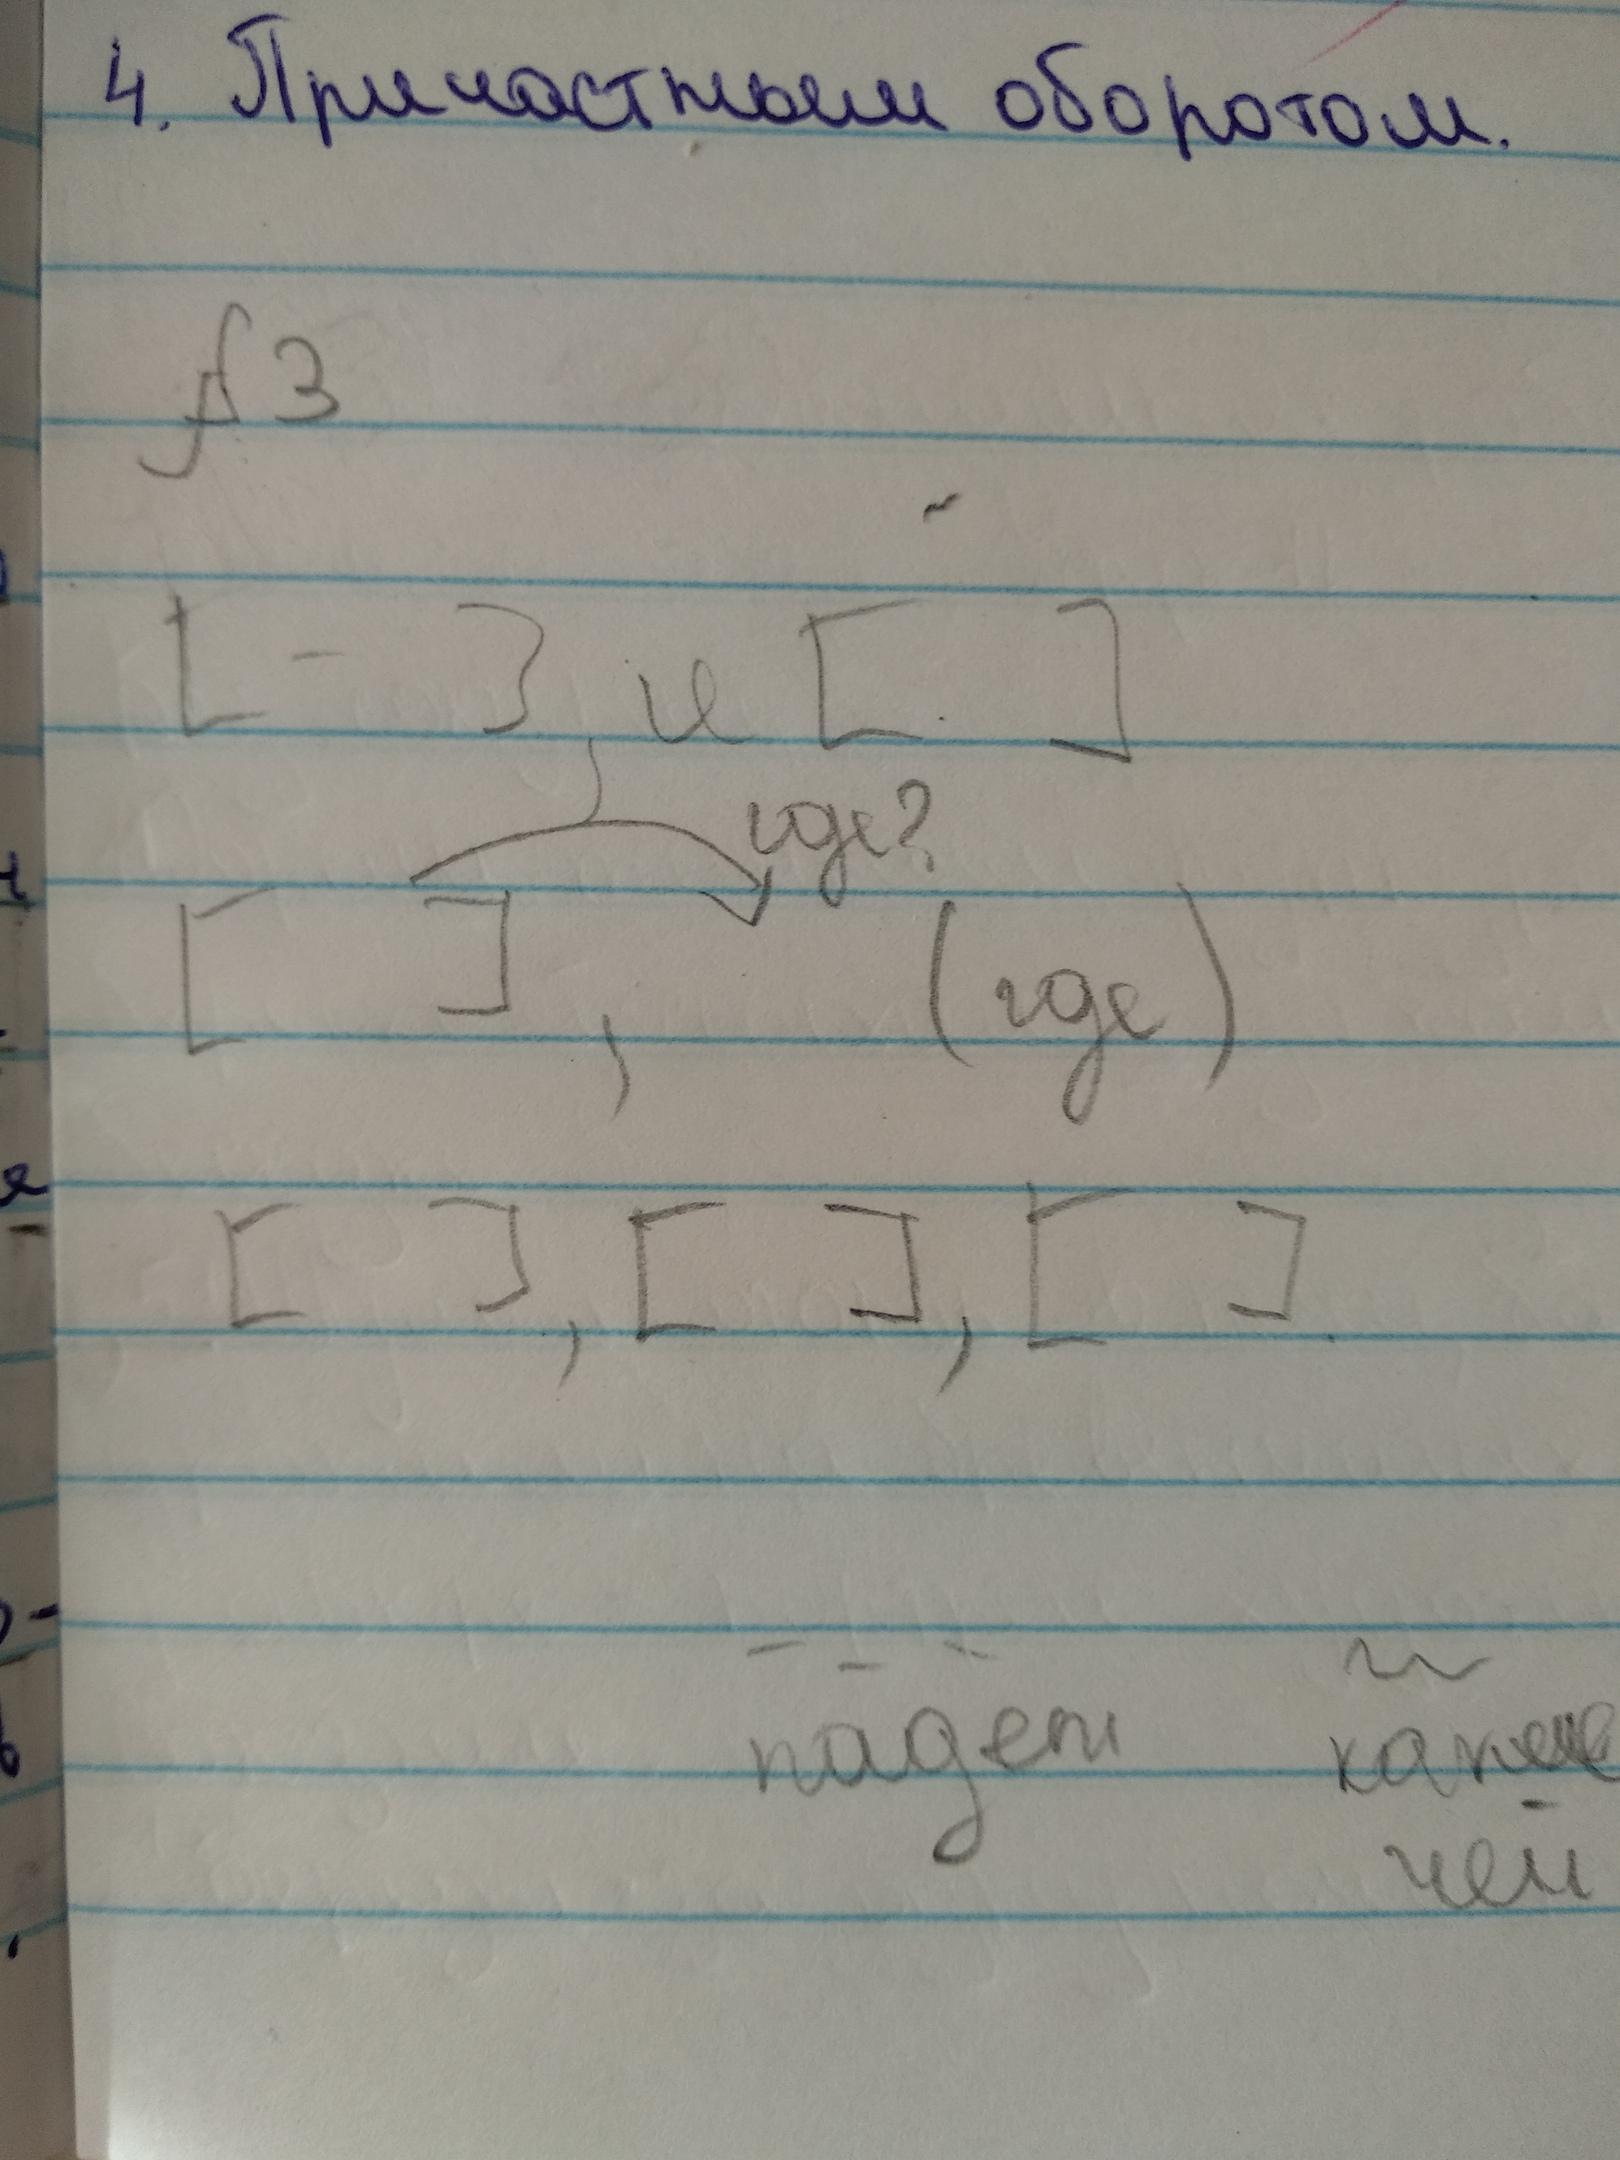 4. Причастным оборотом.
§ 3
[ - ], и [ ]
где?
[ ], (где)
[ ], [ ], [ ]
падеж
чей